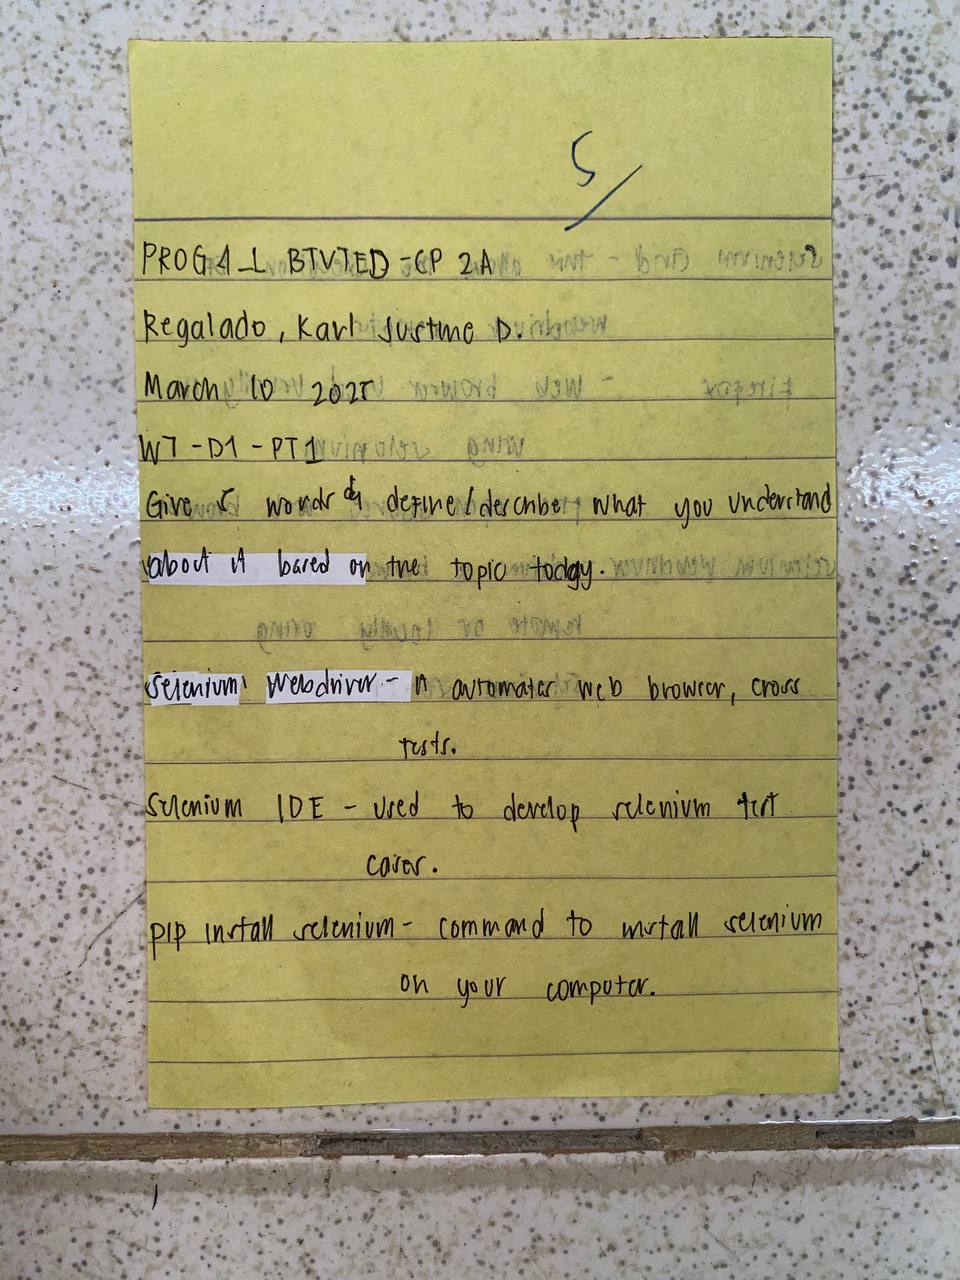 5/
PROG4_L BTVTED-CP 2A
Regalado, Karl Justine D.
March 10 2025
W7-D1-PT1
Give 5 words & define/describe what you understand
about it based on the topic today.
Selenium Webdriver - automates web browser, cross
tests.
Selenium IDE - used to develop selenium test
cases.
pip install selenium - command to install selenium
on your computer.